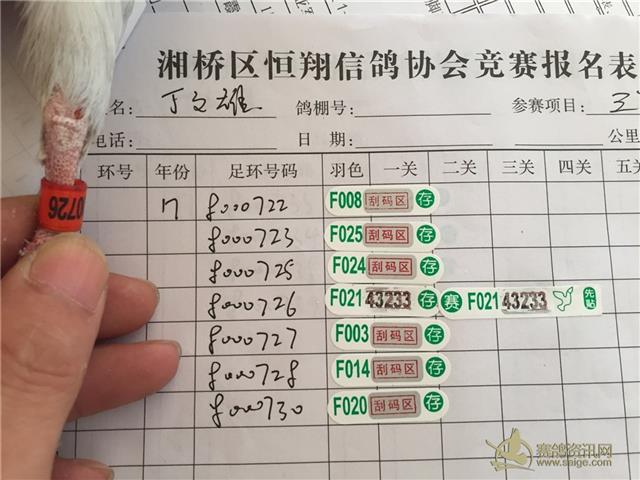 湘桥区恒翔信鸽协会竞赛报名表
名: 丁文雄 鸽棚号: 参赛项目:
电话: 日 期: 公里
环号 年份 足环号码 羽色 一关 二关 三关 四关 五关
17 f000722 F008 刮码区 存
f000723 F025 刮码区 存
f000725 F024 刮码区 存
f000726 F021 43233 存 赛 F021 43233 先贴
f000727 F003 刮码区 存
f000728 F014 刮码区 存
f000730 F020 刮码区 存
0726
赛鸽资讯网
www.saige.com